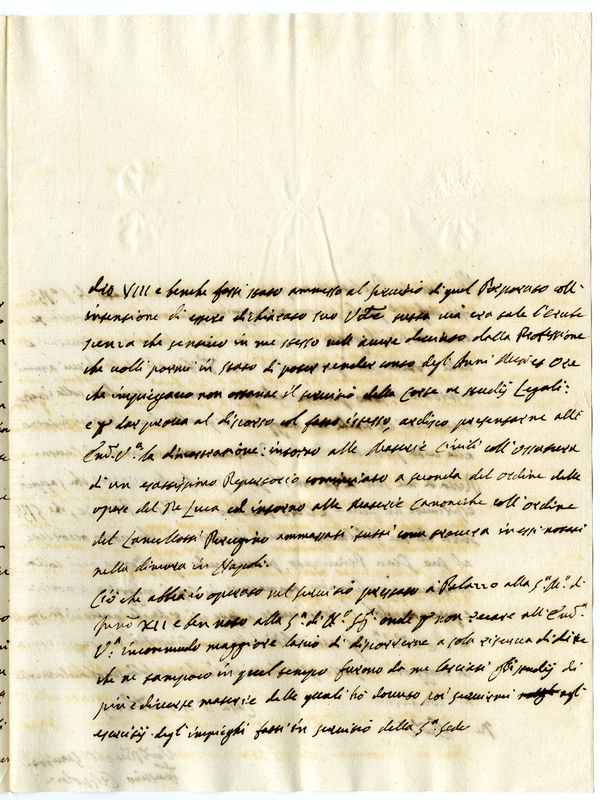 dro VIII e benche fossi stato ammesso al servizio di quel Porporato coll'
intenzione di essere dichiarato suo Udre. tutta via era tale l'
che sentivo in me stesso nell' avere deviato dalla Professione
che volli pormi in stato di poter render conto degl' Anni Mesi et Ore
che impiegavo non ostante il servizio della Corte ne studij Legali:
e p dar prova al discorso col fatto istesso, ardisco presentarne all'
Em. V.a la dimostrazione: intorno alle Materie Civili coll' Ossatura
di un esattissimo Repertorio cominciato a seconda del ordine delle
opere del De Luca ed intorno alle Materie Canoniche coll' ordine
del Lancellotti Perugino ammassati tutti come in essi notasi
nella dimora in Napoli.
Ciò che abbia io operato nel servizio prestato a Palazzo alla S. M. di
Inno XII e ben noto alla S. di N. Sig. onde p non recare all' Em.
V.a incommodo maggiore lascio di disporverne a sola di dire
che ne tampoco in quel tempo furono da me lasciati gli studij di
più e diverse materie delle quali hò dovuto poi servirmi agl'
esercizij degl' impieghi fatti in servizio della S. Sede